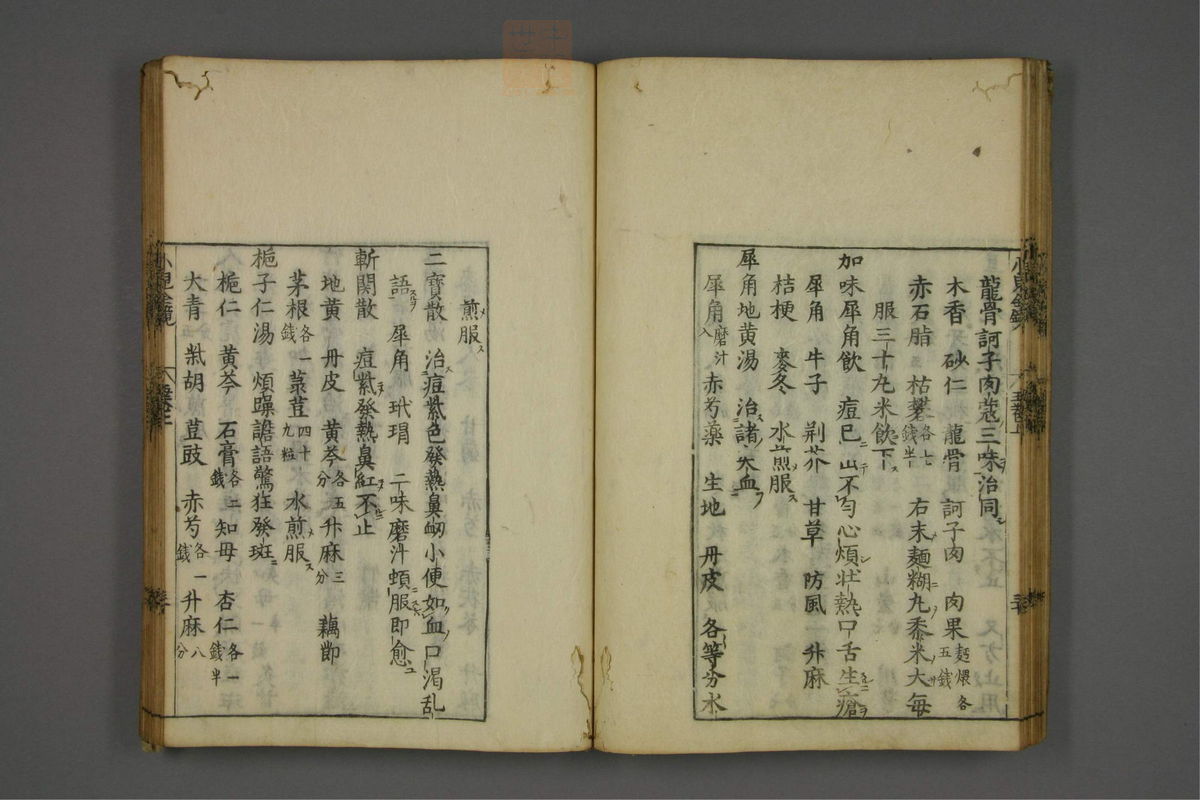 龍骨訶子肉蔲三味治同
木香 砂仁 龍骨 訶子肉 肉果麵煨各五錢
赤石脂 枯礬各七錢半 右末麵糊丸黍米大每
服三十丸米飲下
加味犀角飲 痘已出不勻心煩壮熱口舌生瘡
犀角 牛子 荆芥 甘草 防風 升麻
桔梗 麥冬 水煎服
犀角地黄湯 治諸失血
犀角磨汁入 赤芍藥 生地 丹皮 各等分水
煎服
三寶散 治痘紫色發熱鼻衂小便如血口渴乱
語 犀角 玳瑁 二味磨汁頓服即愈
斬関散 痘紫發熱鼻紅不止
地黄 丹皮 黄芩各五分 升麻三分 藕節
茅根各一錢 菉荳四十九粒 水煎服
梔子仁湯 煩躁譫語驚狂發斑
梔仁 黄芩 石膏各二錢 知母 杏仁各一錢半
大青 柴胡 荳豉 赤芍各一錢 升麻八分